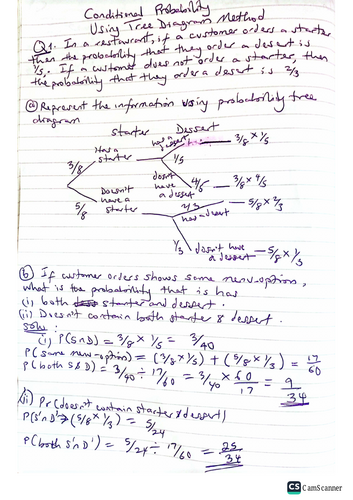 Conditional Probability
Using Tree Diagram Method
Q1. In a restaurant, if a customer orders a starter
then the probability that they order a desert is
1/5. If a customer does not order a starter, then
the probability that they order a desert is 2/3
(a) Represent the information using probability tree
diagram
Starter Dessert
Has a starter
has a dessert
3/8 × 1/5
3/8
1/5
doesn't have a dessert
4/5 3/8 × 4/5
5/8
Doesn't have a starter
2/3 5/8 × 2/3
has desert
1/3 doesn't have a dessert 5/8 × 1/3
(b) If customer orders shows same menu-option,
what is the probability that is has
(i) both starter and dessert.
(ii) Doesn't contain both starter & dessert.
Soln:
(i) P(S∩D) = 3/8 × 1/5 = 3/40
P(same menu-option) = (3/8 × 1/5) + (5/8 × 1/3) = 17/60
P(both S&D) = 3/40 ÷ 17/60 = 3/40 × 60/17 = 9/34
(ii) Pr(doesn't contain starter & dessert)
P(S'∩D') (5/8 × 1/3) = 5/24
P(both S'∩D') = 5/24 ÷ 17/60 = 25/34
CS CamScanner